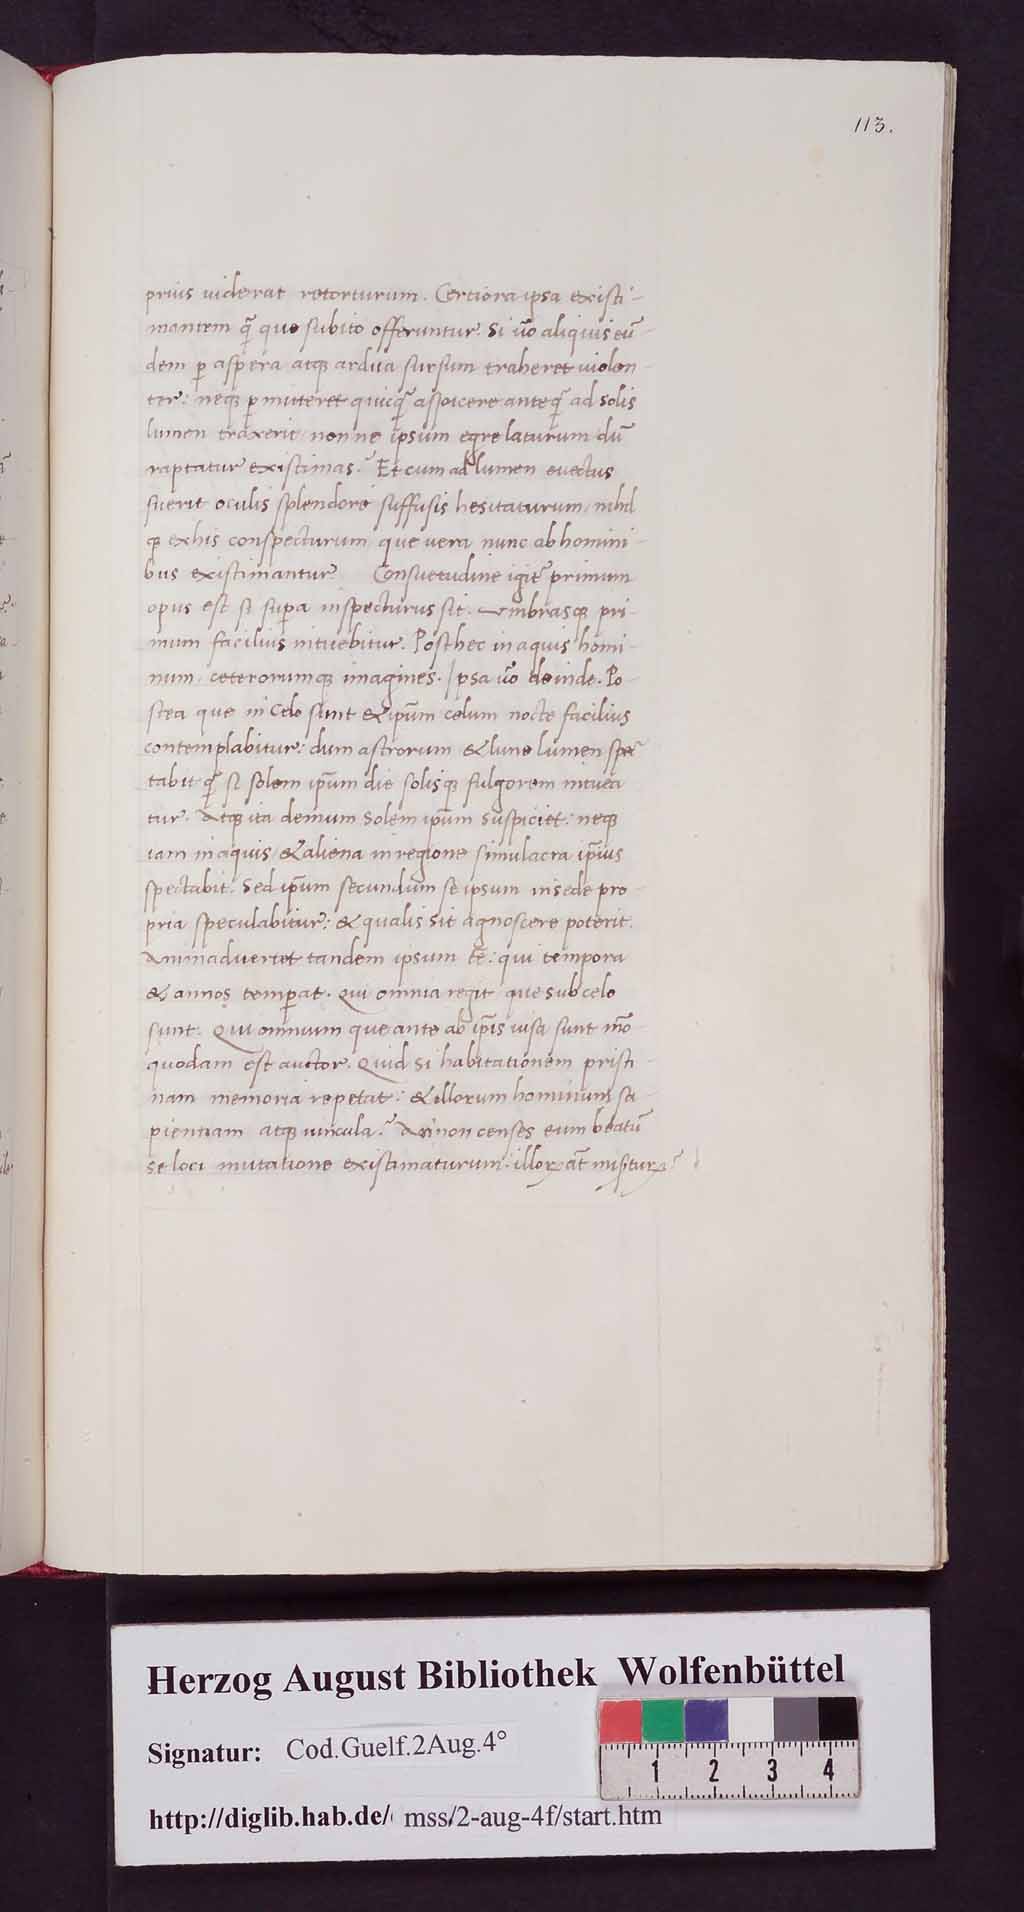 113.
prius uiderat retorturum. Certiora ipsa existi-
mantem q̃ que subito offeruntur. Si ũo aliquis eũ-
dem ꝑ aspera atqꝫ ardua sursum traheret uiolen-
ter: neqꝫ ꝑmitteret quicq̃ aspicere anteq̃ ad solis
lumen traxerit / nonne ipsum egre laturum dũ
raptatur existimas? Et cum ad lumen euectus
fuerit oculis splendore suffusis hesitaturum / nihil
qꝫ ex his conspecturum / que uera nunc ab homini-
bus existimantur? Consuetudine igit̃ primum
opus est si suꝑa inspecturus sit. Vmbrasqꝫ pri-
mum facilius intuebitur. Post hec in aquis homi-
num / ceterorumqꝫ imagines. Ipsa ũo deinde. Po-
stea que in celo sunt & ip̃um celum nocte facilius
contemplabitur: dum astrorum & lune lumen spec-
tabit q̃ si solem ip̃um die solisqꝫ fulgorem intuea
tur. Atqꝫ ita demum solem ip̃um suspiciet: neqꝫ
iam in aquis / & aliena in regione simulacra ip̃ius
spectabit. Sed ip̃um secundum se ipsum in sede pro-
pria speculabitur: & qualis sit agnoscere poterit.
Animaduertet tandem ipsum eẽ: qui tempora
& annos temꝑat. Qui omnia regit que sub celo
sunt. Qui omnium que ante ab ip̃is uisa sunt mõ
quodam est auctor. Quid si habitationem pristi-
nam memoria repetat: & illorum hominum sa-
pientiam atqꝫ uincula? An non censes eum beatũ
se loci mutatione existimaturum: illoꝝ aũt misertuꝝ?
Herzog August Bibliothek Wolfenbüttel
Signatur: Cod.Guelf.2Aug.4°
1 2 3 4
http://diglib.hab.de/ mss/2-aug-4f/start.htm